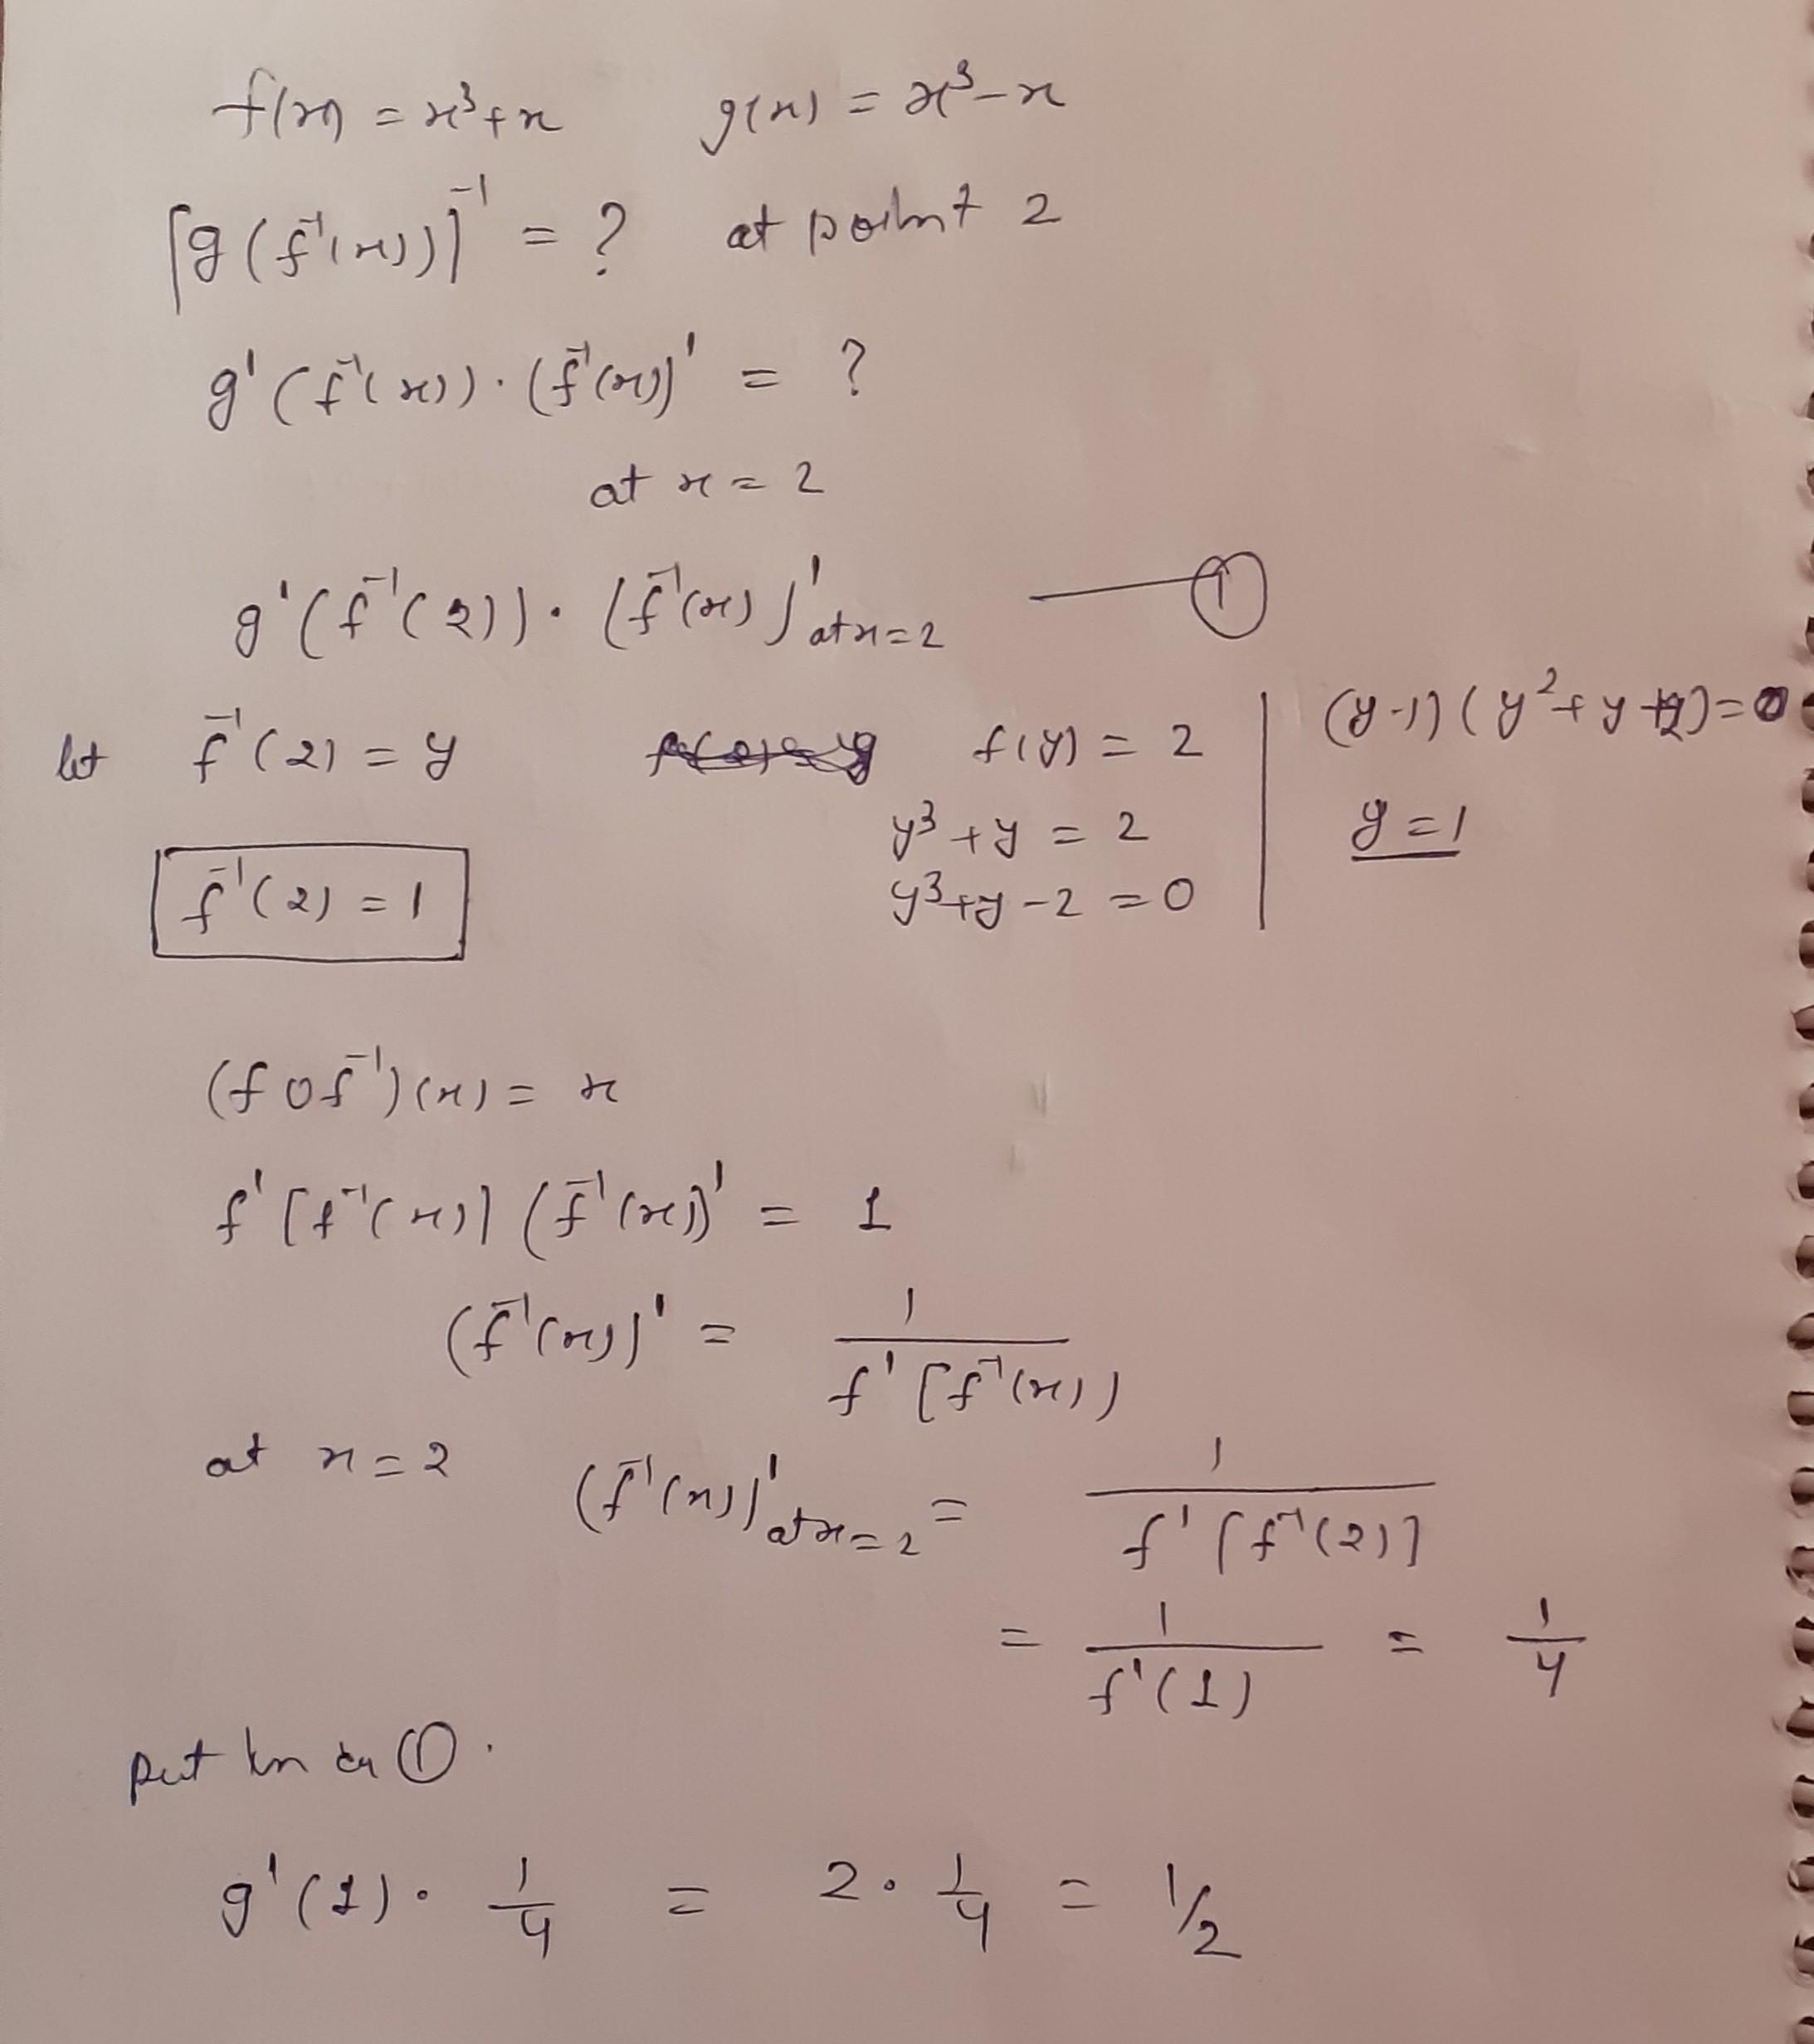 f(x) = x³+x g(x) = x³-x
[g(f⁻¹(x))]⁻¹ = ? at point 2
g'(f⁻¹(x)).(f⁻¹(x))' = ?
at x = 2
g'(f⁻¹(2)). (f⁻¹(x))' at x=2 — ①
let f⁻¹(2) = y f(y) = 2 | (y-1)(y²+y+2)=0
y³+y = 2 | y=1
f⁻¹(2) = 1 y³+y-2 = 0
(fof⁻¹)(x) = x
f'[f⁻¹(x)] (f⁻¹(x))' = 1
(f⁻¹(x))' = 1/f'[f⁻¹(x))
at x=2 (f⁻¹(x))' at x=2 = 1/f'[f⁻¹(2)]
= 1/f'(1) = 1/4
put in ①.
g'(1). 1/4 = 2. 1/4 = 1/2